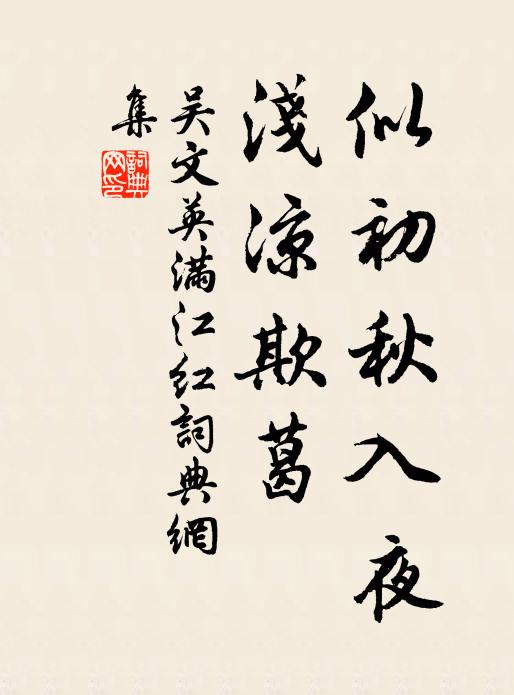 似初秋入夜
淺涼欺葛
吳文英滿江紅詞典網
集
詞典
网印